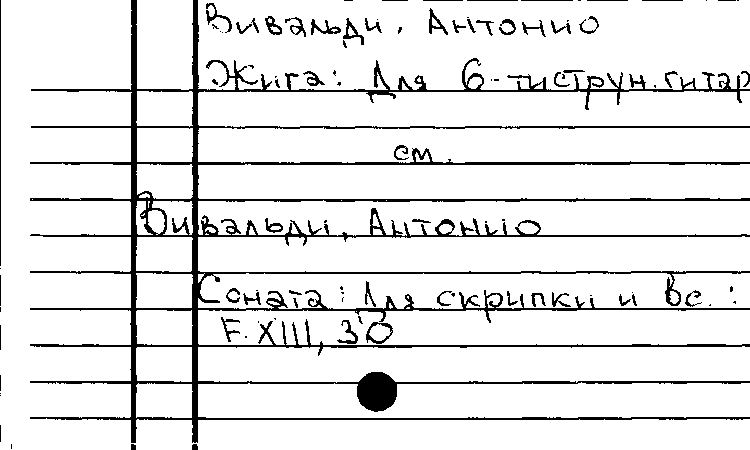 Вивальди, Антонио
Жига: Для 6-тиструн. гитар
см.
Вивальди, Антонио
Соната: Для скрипки и вс.:
F. XIII, 30